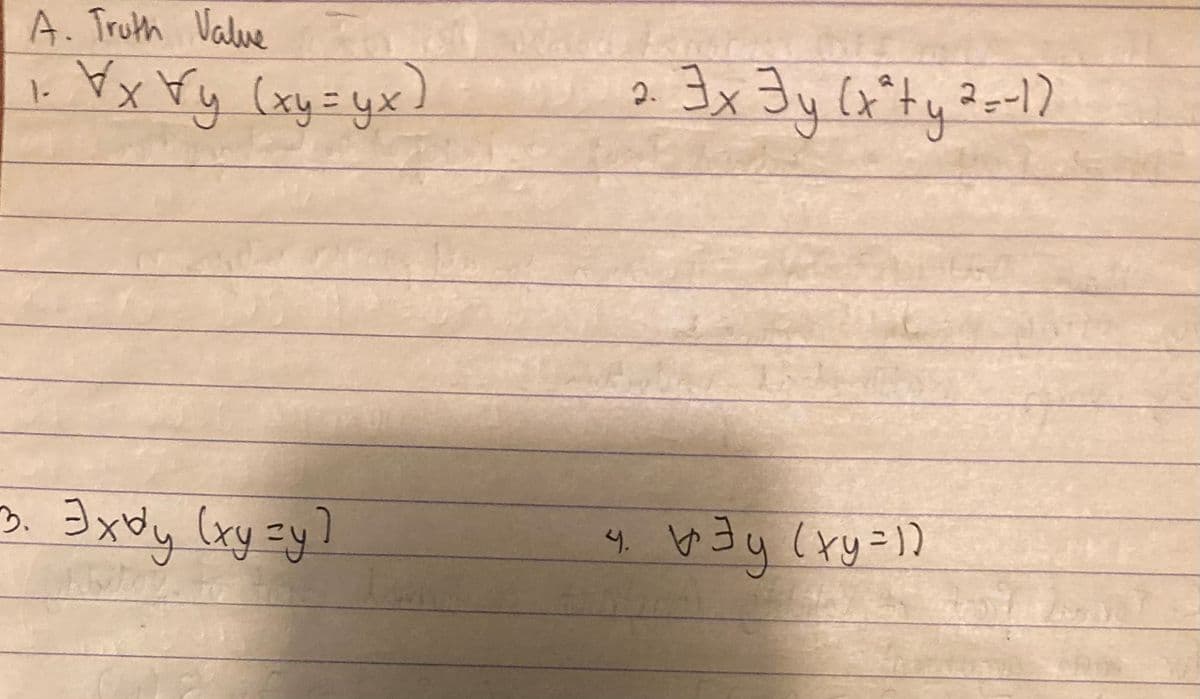 A. Truth Value
1. ∀x ∀y (xy = yx)
2. ∃x ∃y (x² + y² = -1)
3. ∃x∀y (xy = y)
4. ∀∃y (xy = 1)